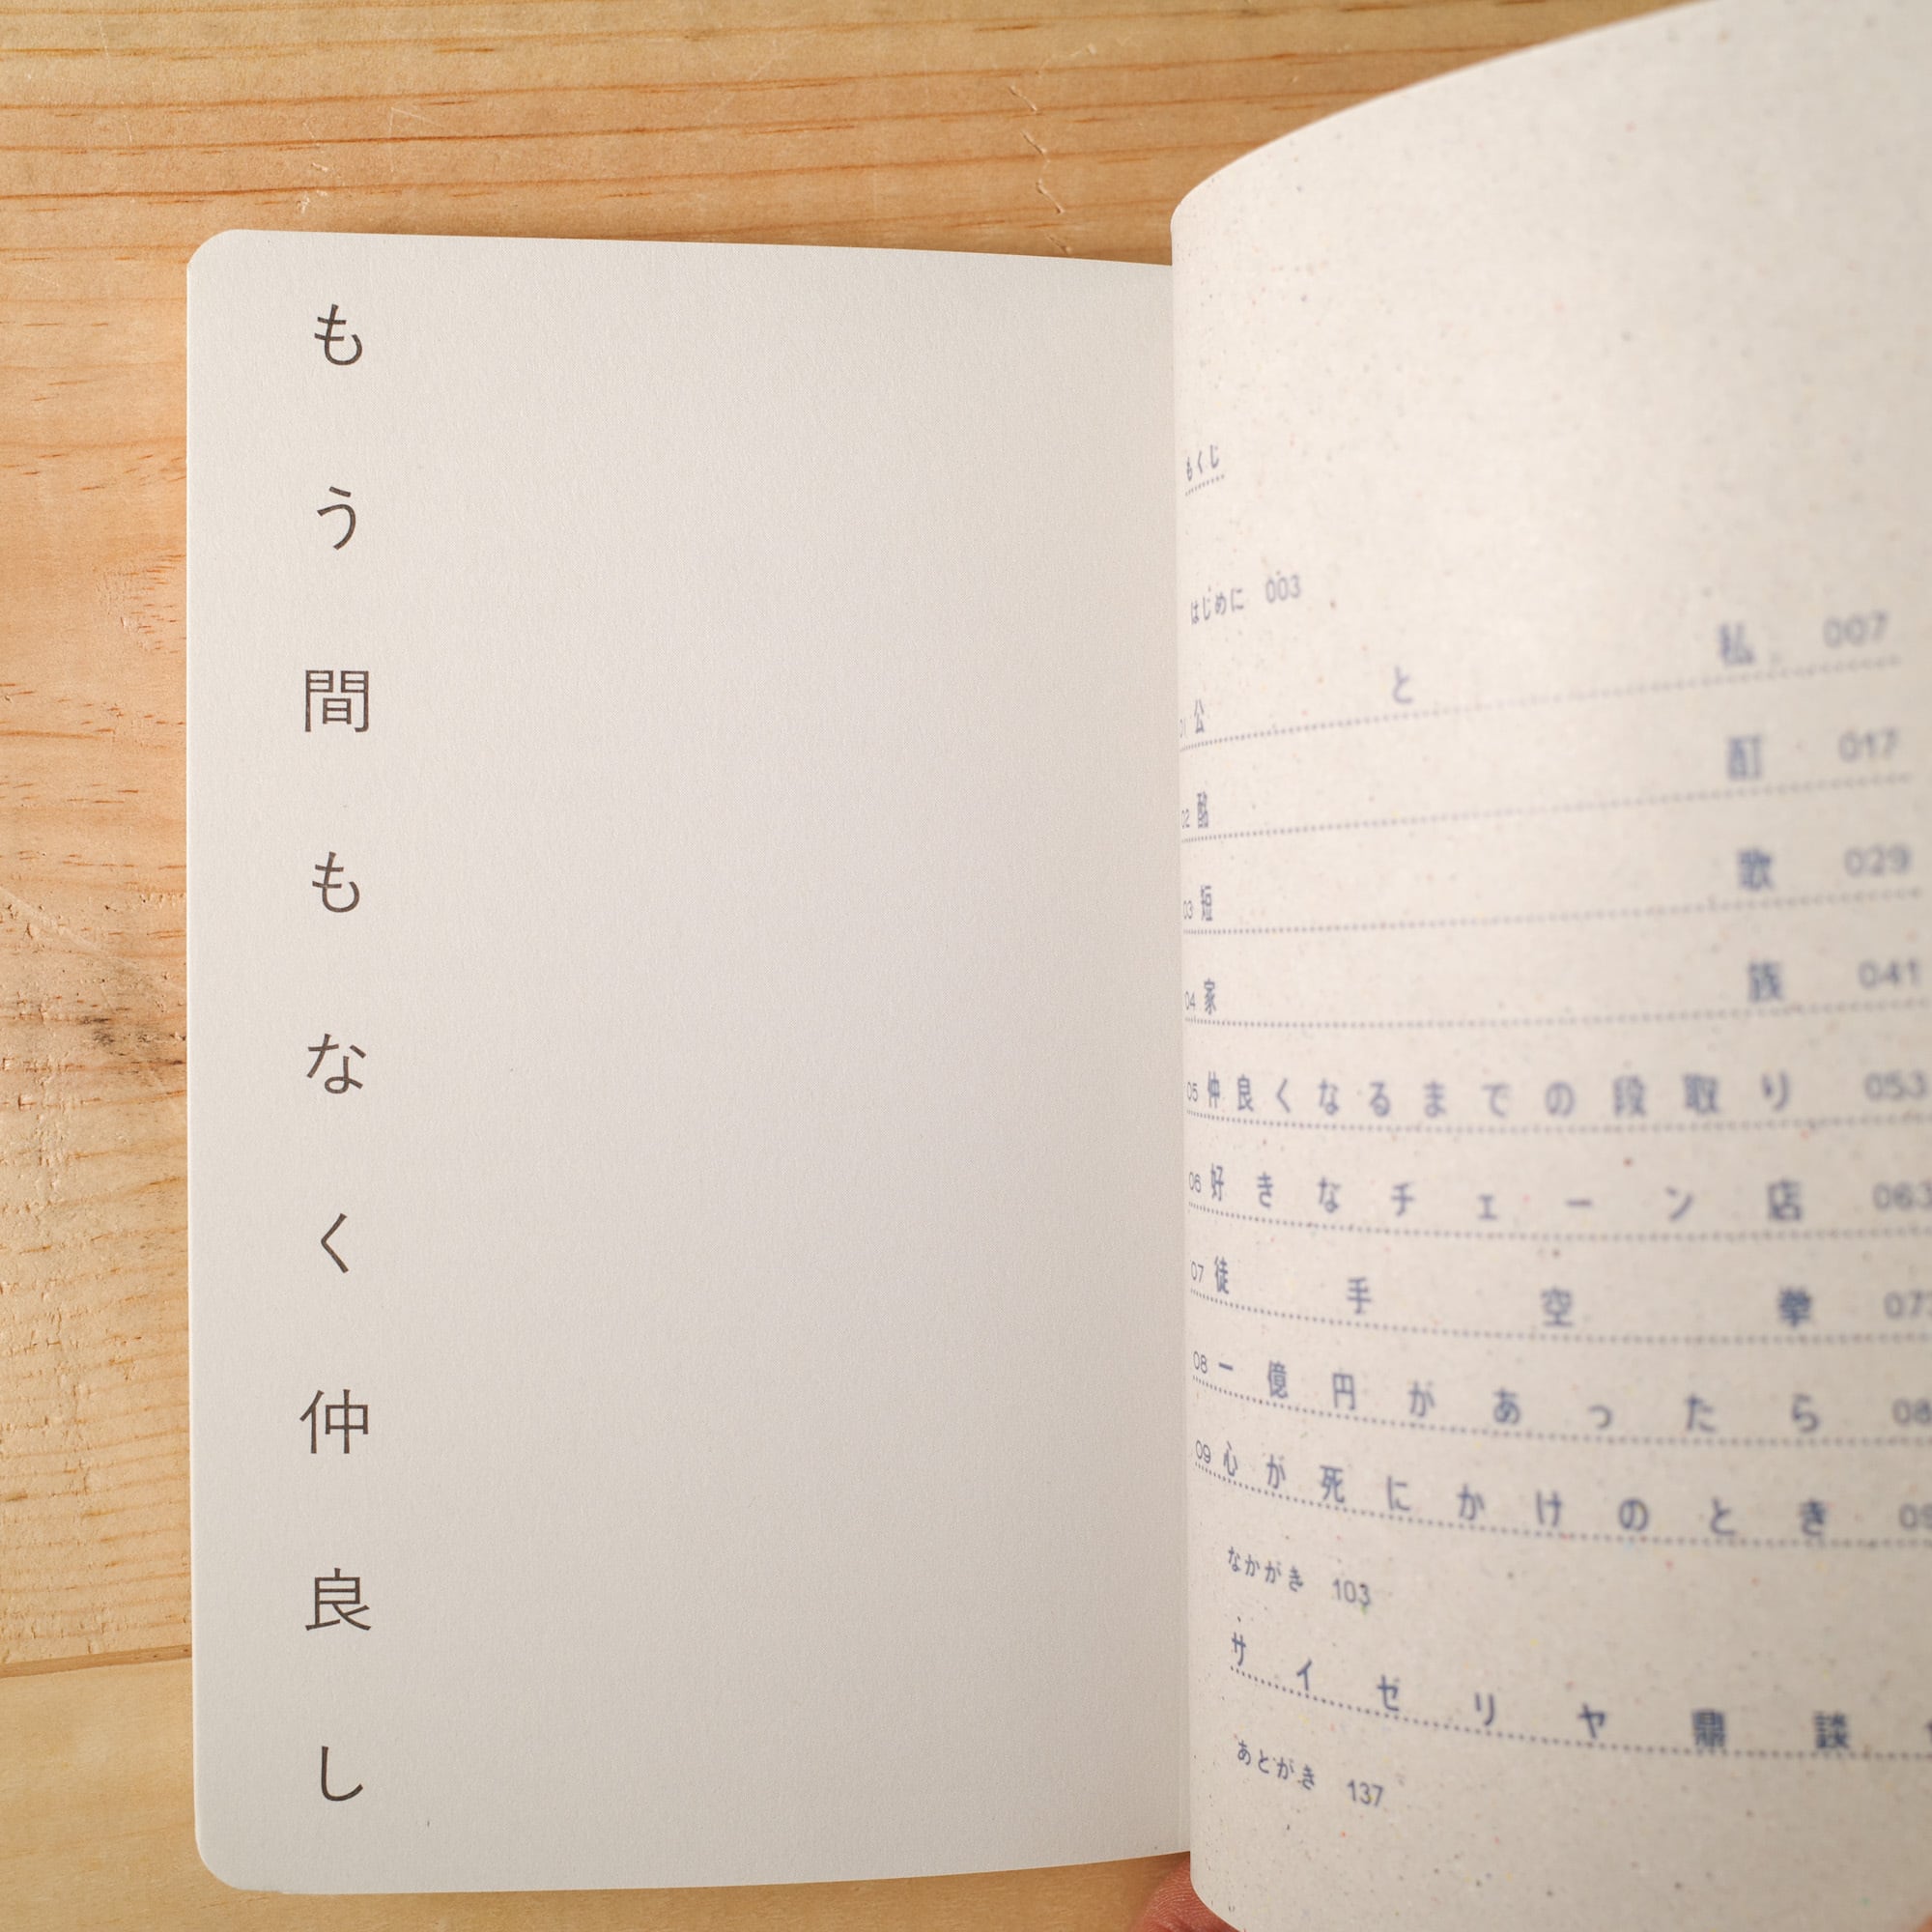 もう間もなく仲良し
もくじ
はじめに 003
01 公と私 007
02 酩酊 017
03 短歌 029
04 家族 041
05 仲良くなるまでの段取り 053
06 好きなチェーン店 063
07 徒手空拳 07
08 一億円があったら 08
09 心が死にかけのとき 09
なかがき 103
サイゼリヤ鼎談
あとがき 137